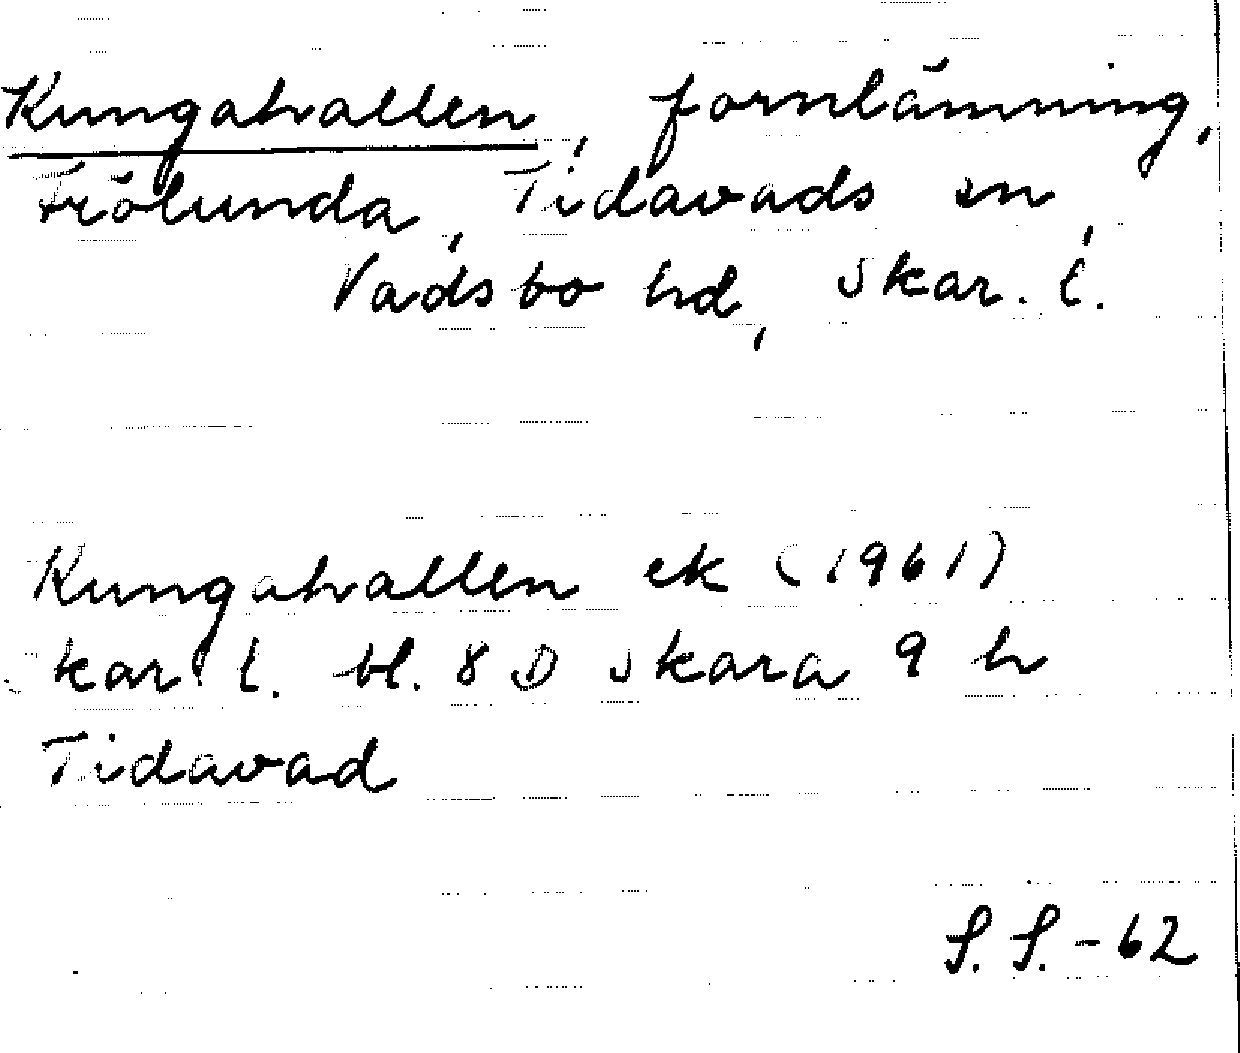 Kungahallen, fornlämning,
Frölunda, Tidavads sn,
Vadsbo hd, Skar. l.
Kungahallen ek (1961)
kar l. bl. 8 D Skara 9 h
Tidavad
S. S. - 62